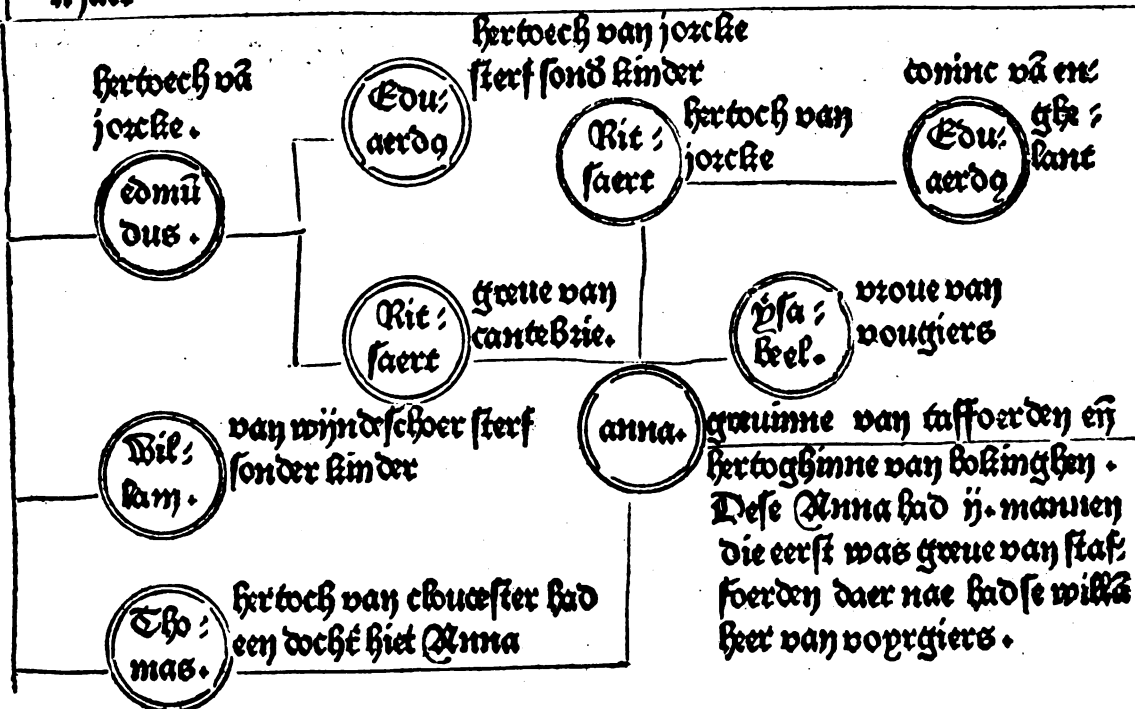 hertoech vā
jorcke.
edmū
dus.
Edu⸗
aerdꝯ
hertoech van jorcke
sterf sond̕ kinder
Rit⸗
saert
hertoch van
jorcke
coninc vā en⸗
ghe⸗
lant
Edu⸗
aerdꝯ
Rit⸗
saert
greue van
cantebrie.
ÿsa⸗
beel.
vroue van
vougiers
Wil⸗
lam.
van wijndeschoer sterf
sonder kinder
anna.
greuinne van taffoerden eñ
hertoghinne van bokinghen.
Dese Anna had ij. mannen
die eerst was greue van staf⸗
foerden daer nae had se willā
heer van voprgiers.
Tho⸗
mas.
hertoch van cloucester had
een docht̕ hiet Anna